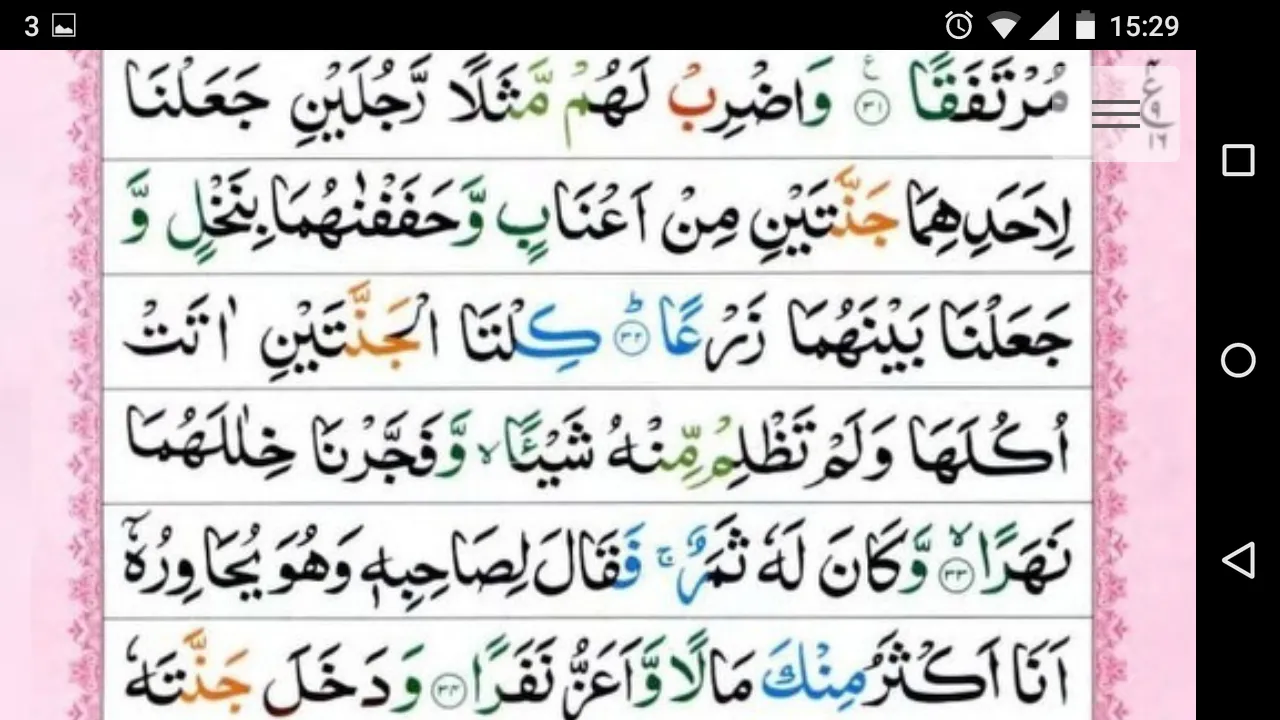 3 15:29
مُرْتَفَقًا ۝٣١ ع وَاضْرِبْ لَهُمْ مَّثَلًا رَّجُلَيْنِ جَعَلْنَا
ع ٩ ١٦
لِاَحَدِهِمَا جَنَّتَيْنِ مِنْ اَعْنَابٍ وَّحَفَفْنٰهُمَا بِنَخْلٍ وَّ
جَعَلْنَا بَيْنَهُمَا زَرْعًا ؕ۝٣٢ كِلْتَا الْجَنَّتَيْنِ اٰتَتْ
اُكُلَهَا وَلَمْ تَظْلِمْ مِّنْهُ شَيْـًٔا ۙ وَّفَجَّرْنَا خِلٰلَهُمَا
نَهَرًا ۙ۝٣٣ وَّكَانَ لَهٗ ثَمَرٌ ۚ فَقَالَ لِصَاحِبِهٖ وَهُوَ يُحَاوِرُهٗۤ
اَنَا اَكْثَرُ مِنْكَ مَالًا وَّاَعَزُّ نَفَرًا ۝٣٤ وَدَخَلَ جَنَّتَهٗ